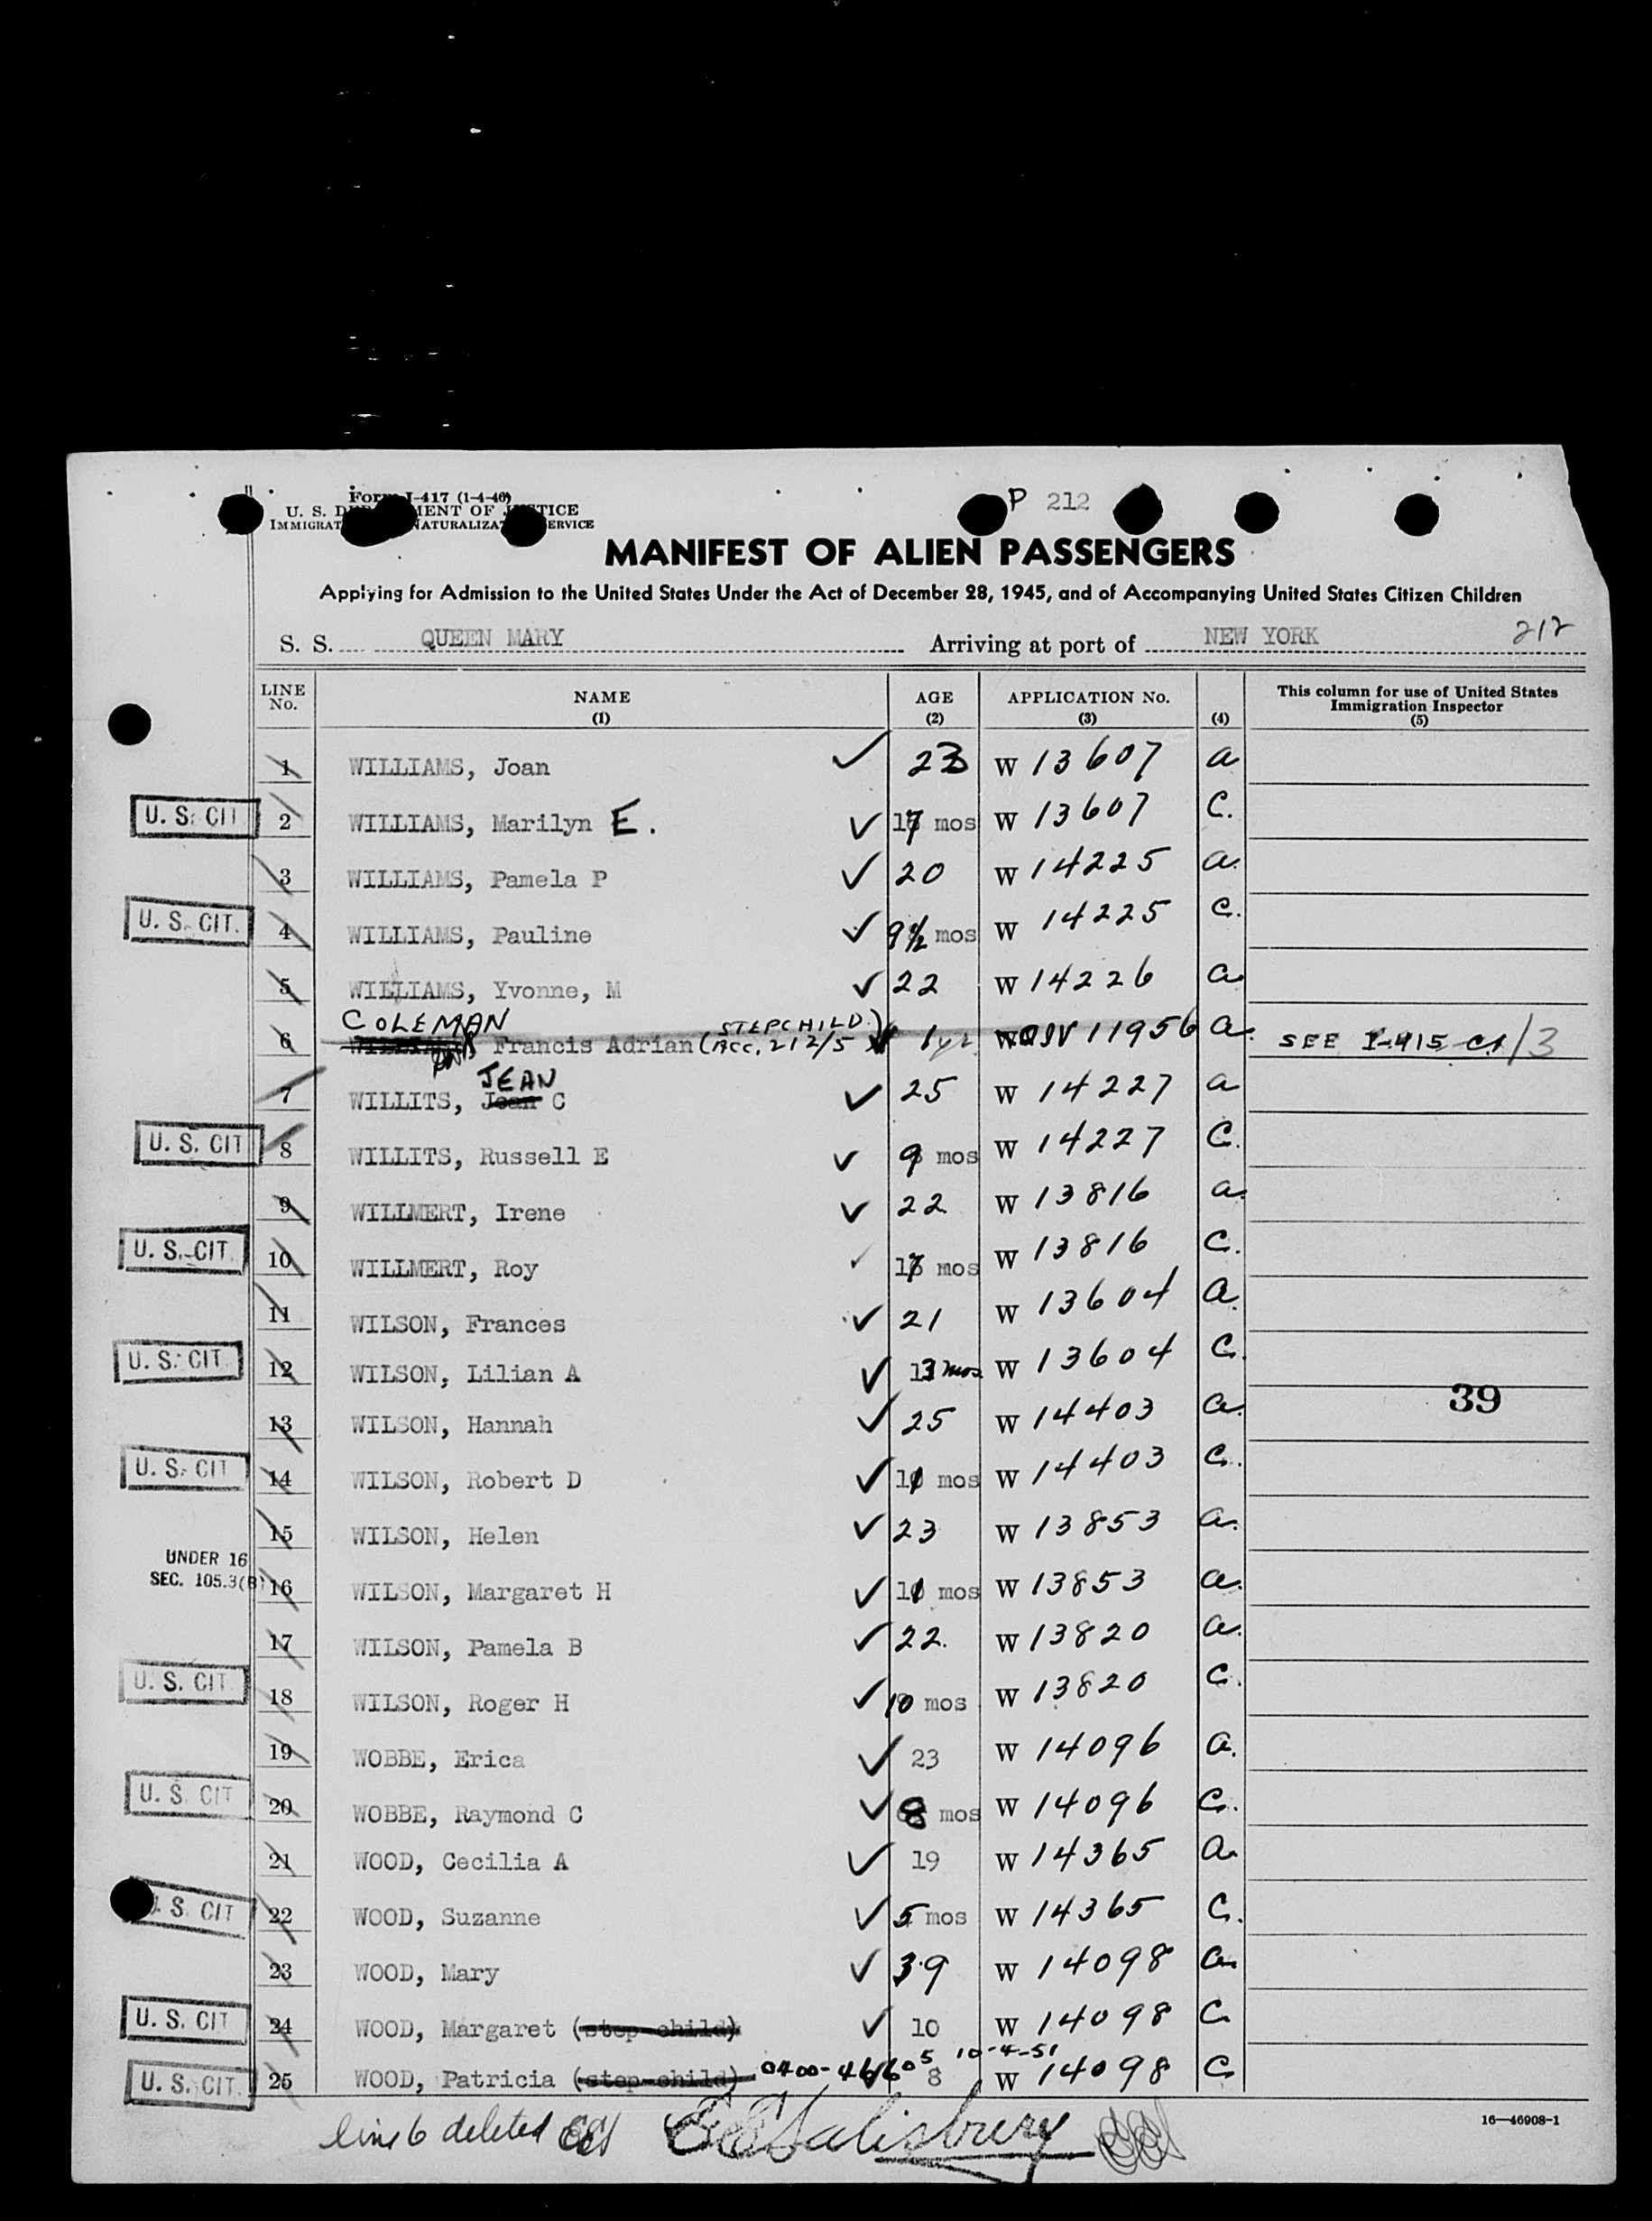 Form I-417 (1-4-46)
U. S. DEPARTMENT OF JUSTICE
IMMIGRATION NATURALIZATION SERVICE
P 212
MANIFEST OF ALIEN PASSENGERS
Applying for Admission to the United States Under the Act of December 28, 1945, and of Accompanying United States Citizen Children
S. S. QUEEN MARY Arriving at port of NEW YORK 212
LINE No. NAME (1) AGE (2) APPLICATION No. (3) (4) This column for use of United States Immigration Inspector (5)
1 WILLIAMS, Joan ✓ 23 W 13607 a
U. S. CIT 2 WILLIAMS, Marilyn E. ✓ 17 mos W 13607 C.
3 WILLIAMS, Pamela P ✓ 20 W 14225 a.
U. S. CIT. 4 WILLIAMS, Pauline ✓ 9½ mos W 14225 C.
5 WILLIAMS, Yvonne, M ✓ 22 W 14226 a
COLEMAN STEPCHILD
6 WILLIAMS Francis Adrian (ACC. 212/5) 1 yr W QIV 11956 a. SEE I-415 /3
JEAN
7 WILLITS, Joan C ✓ 25 W 14227 a
U. S. CIT 8 WILLITS, Russell E ✓ 9 mos W 14227 C.
9 WILLMERT, Irene ✓ 22 W 13816 a.
U. S. CIT. 10 WILLMERT, Roy ✓ 17 mos W 13816 C.
11 WILSON, Frances ✓ 21 W 13604 a.
U. S. CIT. 12 WILSON, Lilian A ✓ 13 mos W 13604 C.
39
13 WILSON, Hannah ✓ 25 W 14403 a.
U. S. CIT 14 WILSON, Robert D ✓ 11 mos W 14403 C.
15 WILSON, Helen ✓ 23 W 13853 a.
UNDER 16
SEC. 105.3(B) 16 WILSON, Margaret H ✓ 11 mos W 13853 a.
17 WILSON, Pamela B ✓ 22. W 13820 a.
U. S. CIT. 18 WILSON, Roger H ✓ 10 mos W 13820 C.
19 WOBBE, Erica ✓ 23 W 14096 a.
U. S. CIT 20 WOBBE, Raymond C ✓ 8 mos W 14096 C.
21 WOOD, Cecilia A ✓ 19 W 14365 a.
U. S. CIT 22 WOOD, Suzanne ✓ 5 mos W 14365 C.
23 WOOD, Mary ✓ 39 W 14098 a
U. S. CIT 24 WOOD, Margaret (step-child) ✓ 10 W 14098 C
0400-46605 10-4-51
U. S. CIT. 25 WOOD, Patricia (step-child) ✓ 8 W 14098 C
16—46908-1
line 6 deleted EES EESalisbury